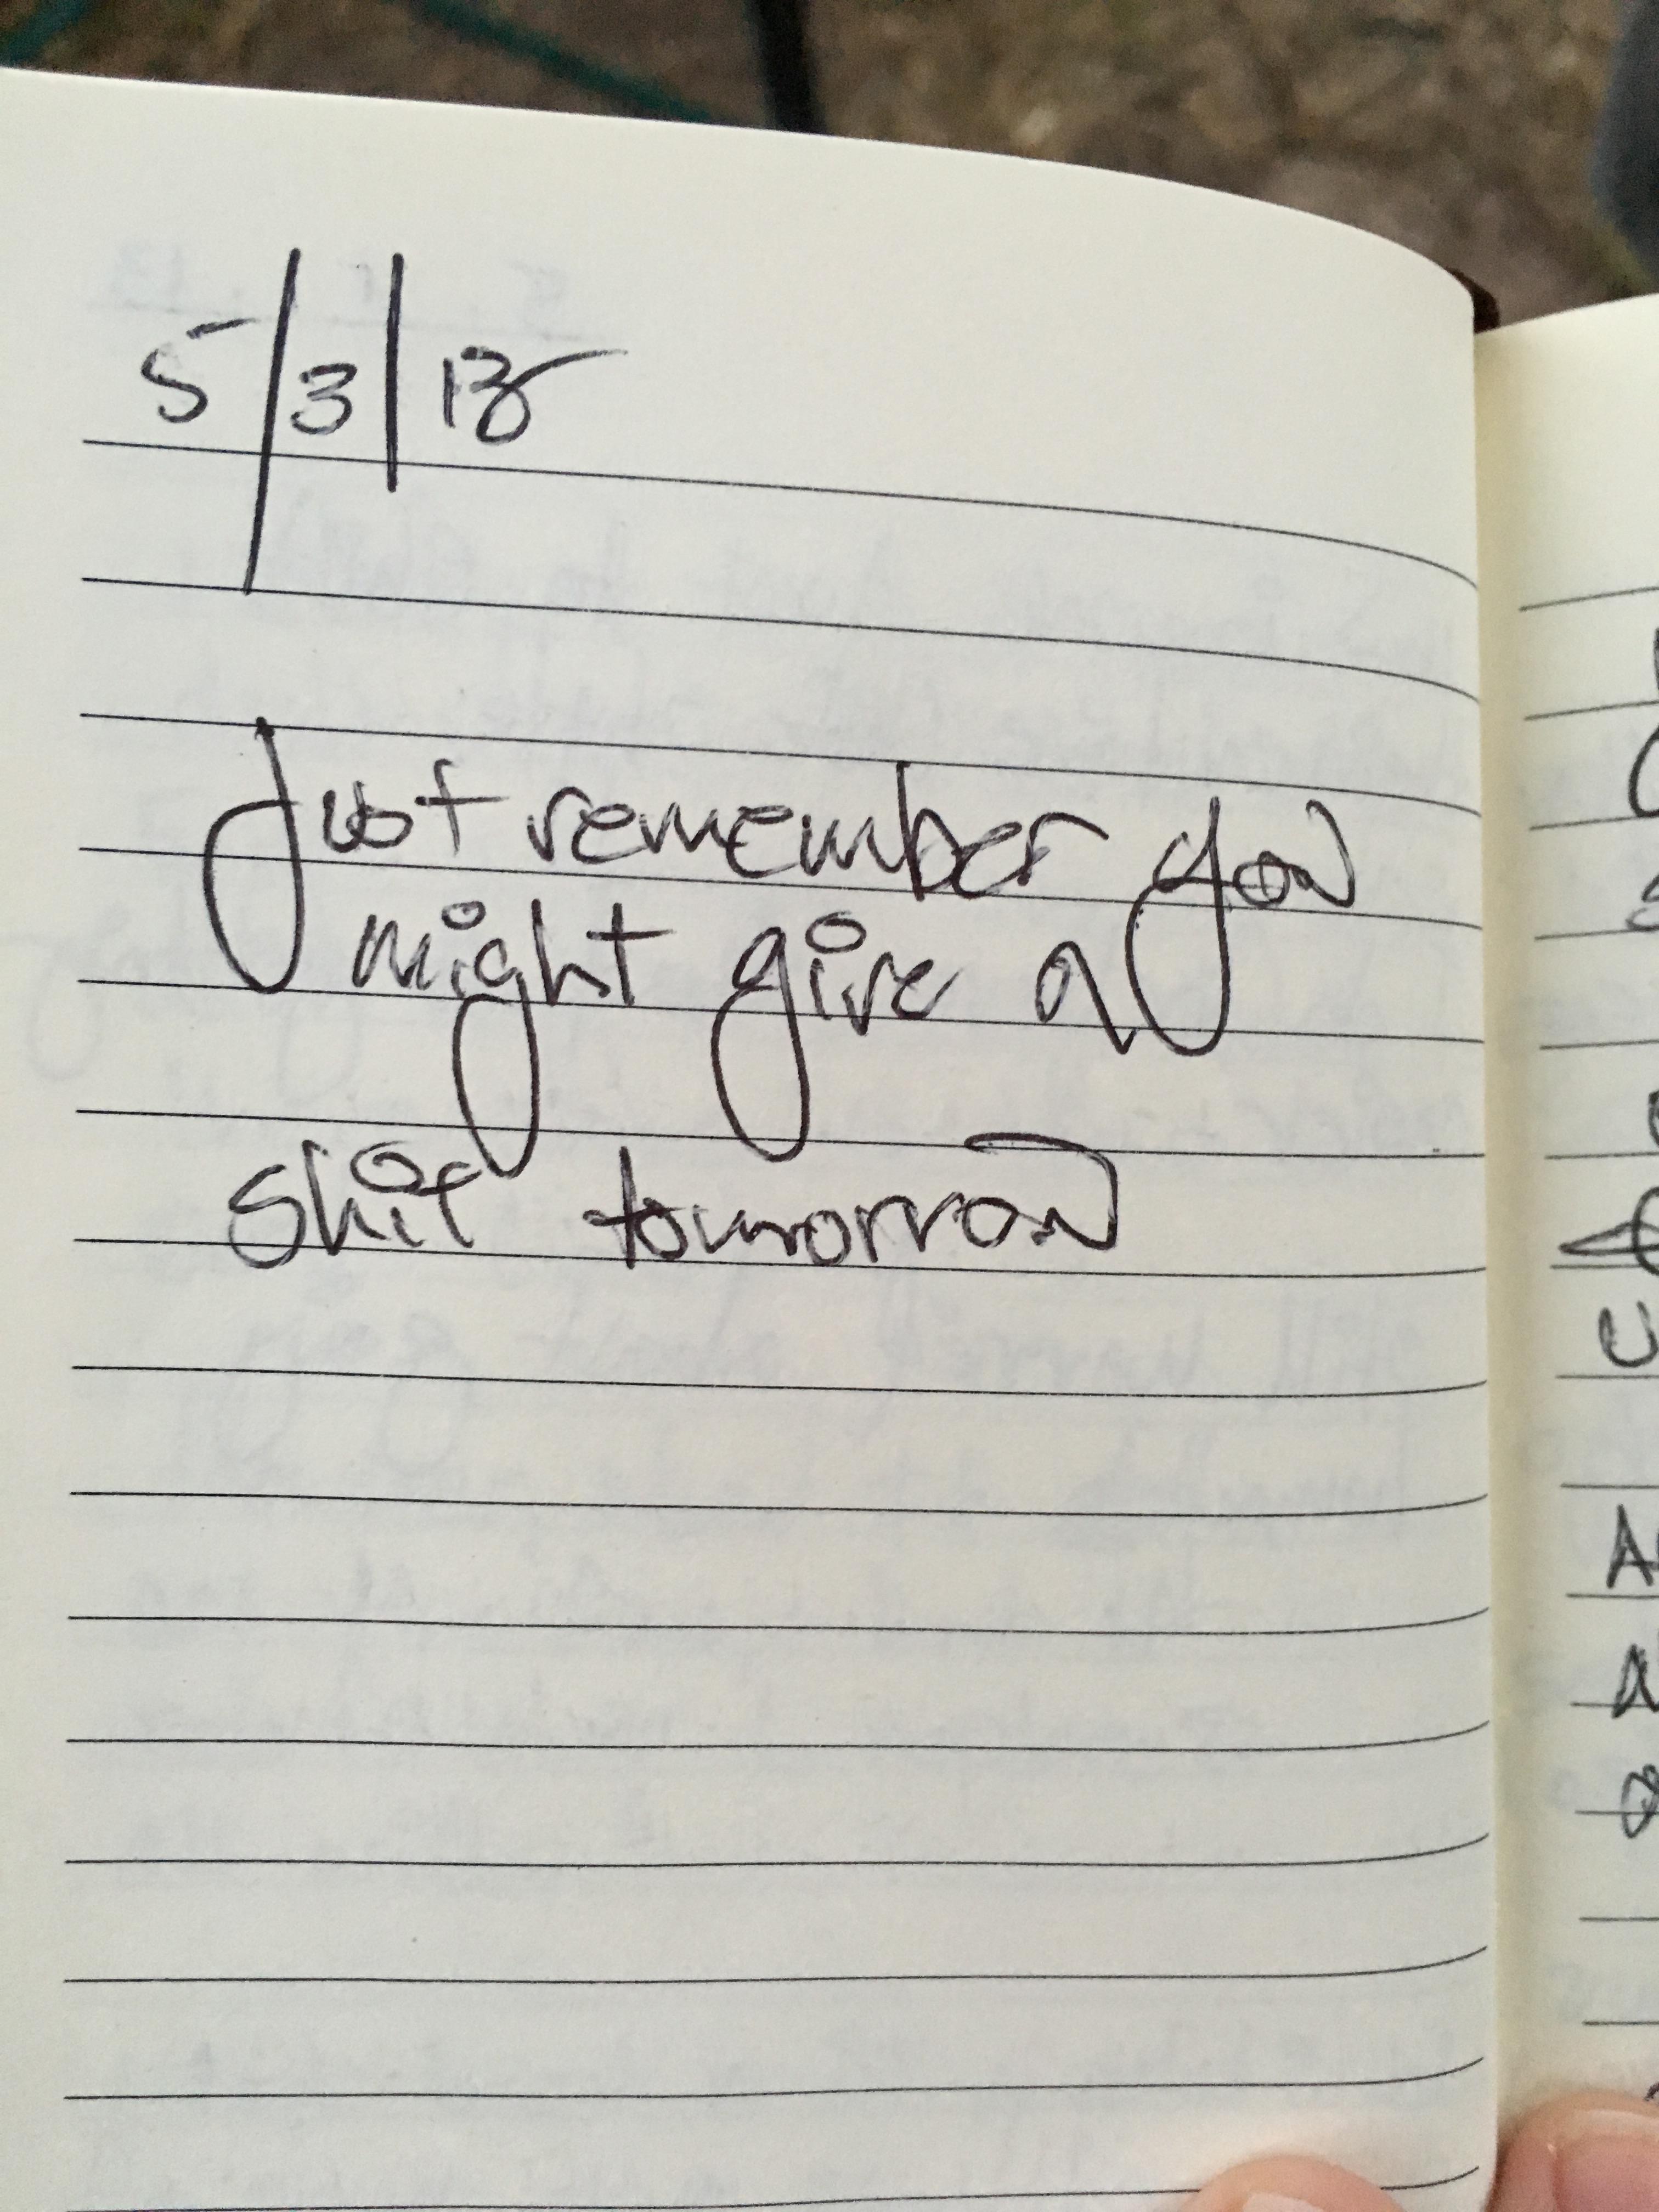 5/3/18
Just remember you
might give a
shit tomorrow